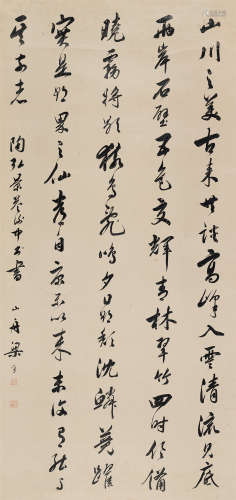 山川之美古來共談高峰入雲清流見底
兩岸石壁五色交輝青林翠竹四時俱備
曉霧將歇猿鳥亂鳴夕日欲頹沈鱗競躍
實是欲界之仙都自康樂以來未復有能與
其奇者 陶弘景答 中書 山舟梁